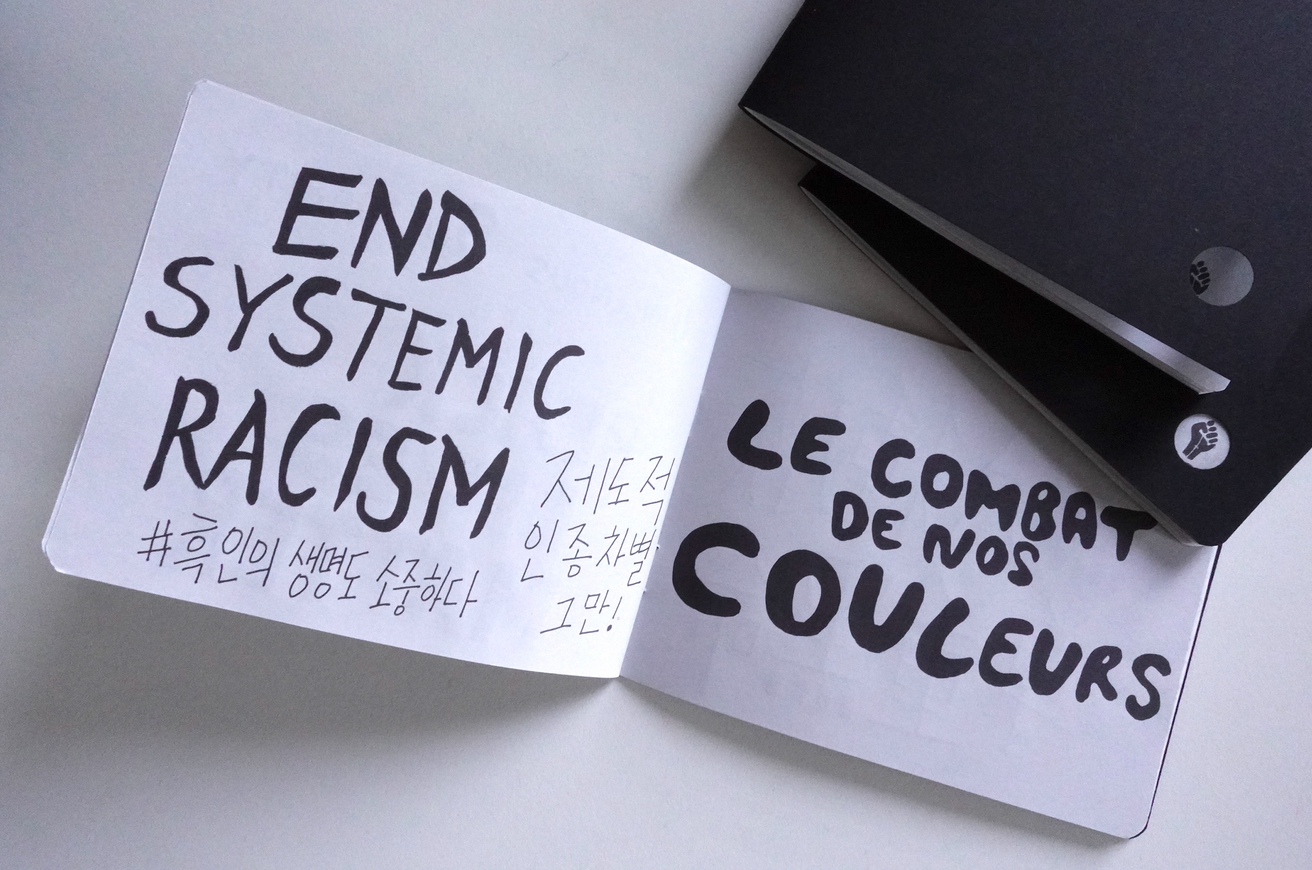 END
SYSTEMIC
RACISM
#흑인의 생명도 소중하다
제도적
인종차별
그만!
LE COMBAT
DE NOS
COULEURS